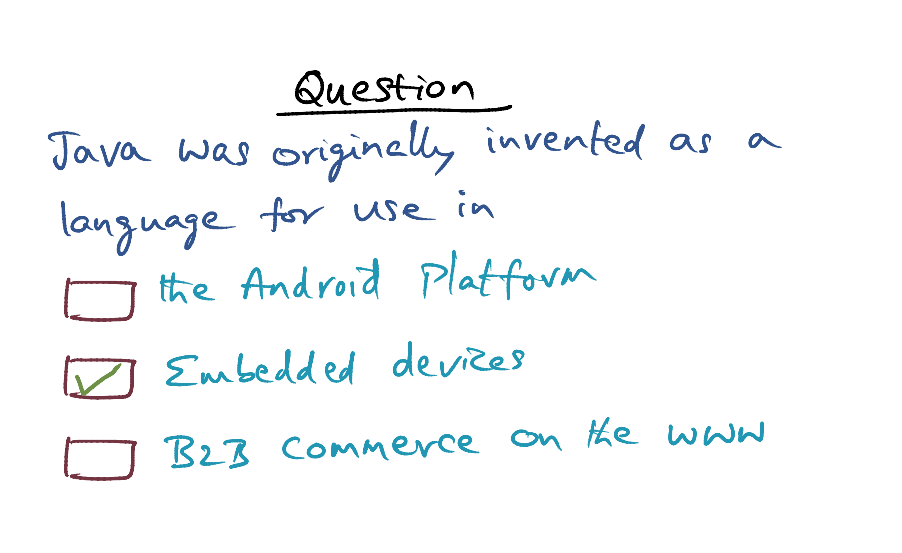 Question
Java was originally invented as a
language for use in
the Android Platform
Embedded devices
B2B commerce on the www